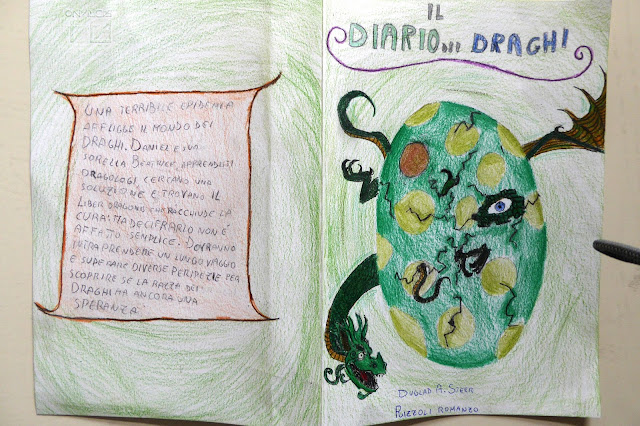 UNA TERRIBILE EPIDEMIA
AFFLIGGE IL MONDO DEI
DRAGHI. DANIEL E SUA
SORELLA BEATRICE, APPRENDISTI
DRAGOLOGI, CERCANO UNA
SOLUZIONE E TROVANO IL
LIBER DRAGONIS CHE RACCHIUDE LA
CURA. MA DECIFRARLO NON È
AFFATTO SEMPLICE. DOVRANNO
INTRAPRENDERE UN LUNGO VIAGGIO
E SUPERARE DIVERSE PERIPEZIE PER
SCOPRIRE SE LA RAZZA DEI
DRAGHI HA ANCORA UNA
SPERANZA
IL
DIARIO DEI DRAGHI
DUGLAD A. STEER
PUZZOLI ROMANZO